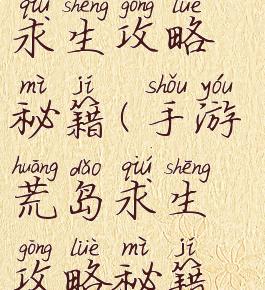 qiú shēng gōng lüè
求生攻略
mì jí shǒu yóu
秘籍(手游
huāng dǎo qiú shēng
荒岛求生
gōng lüè mì jí
攻略秘籍